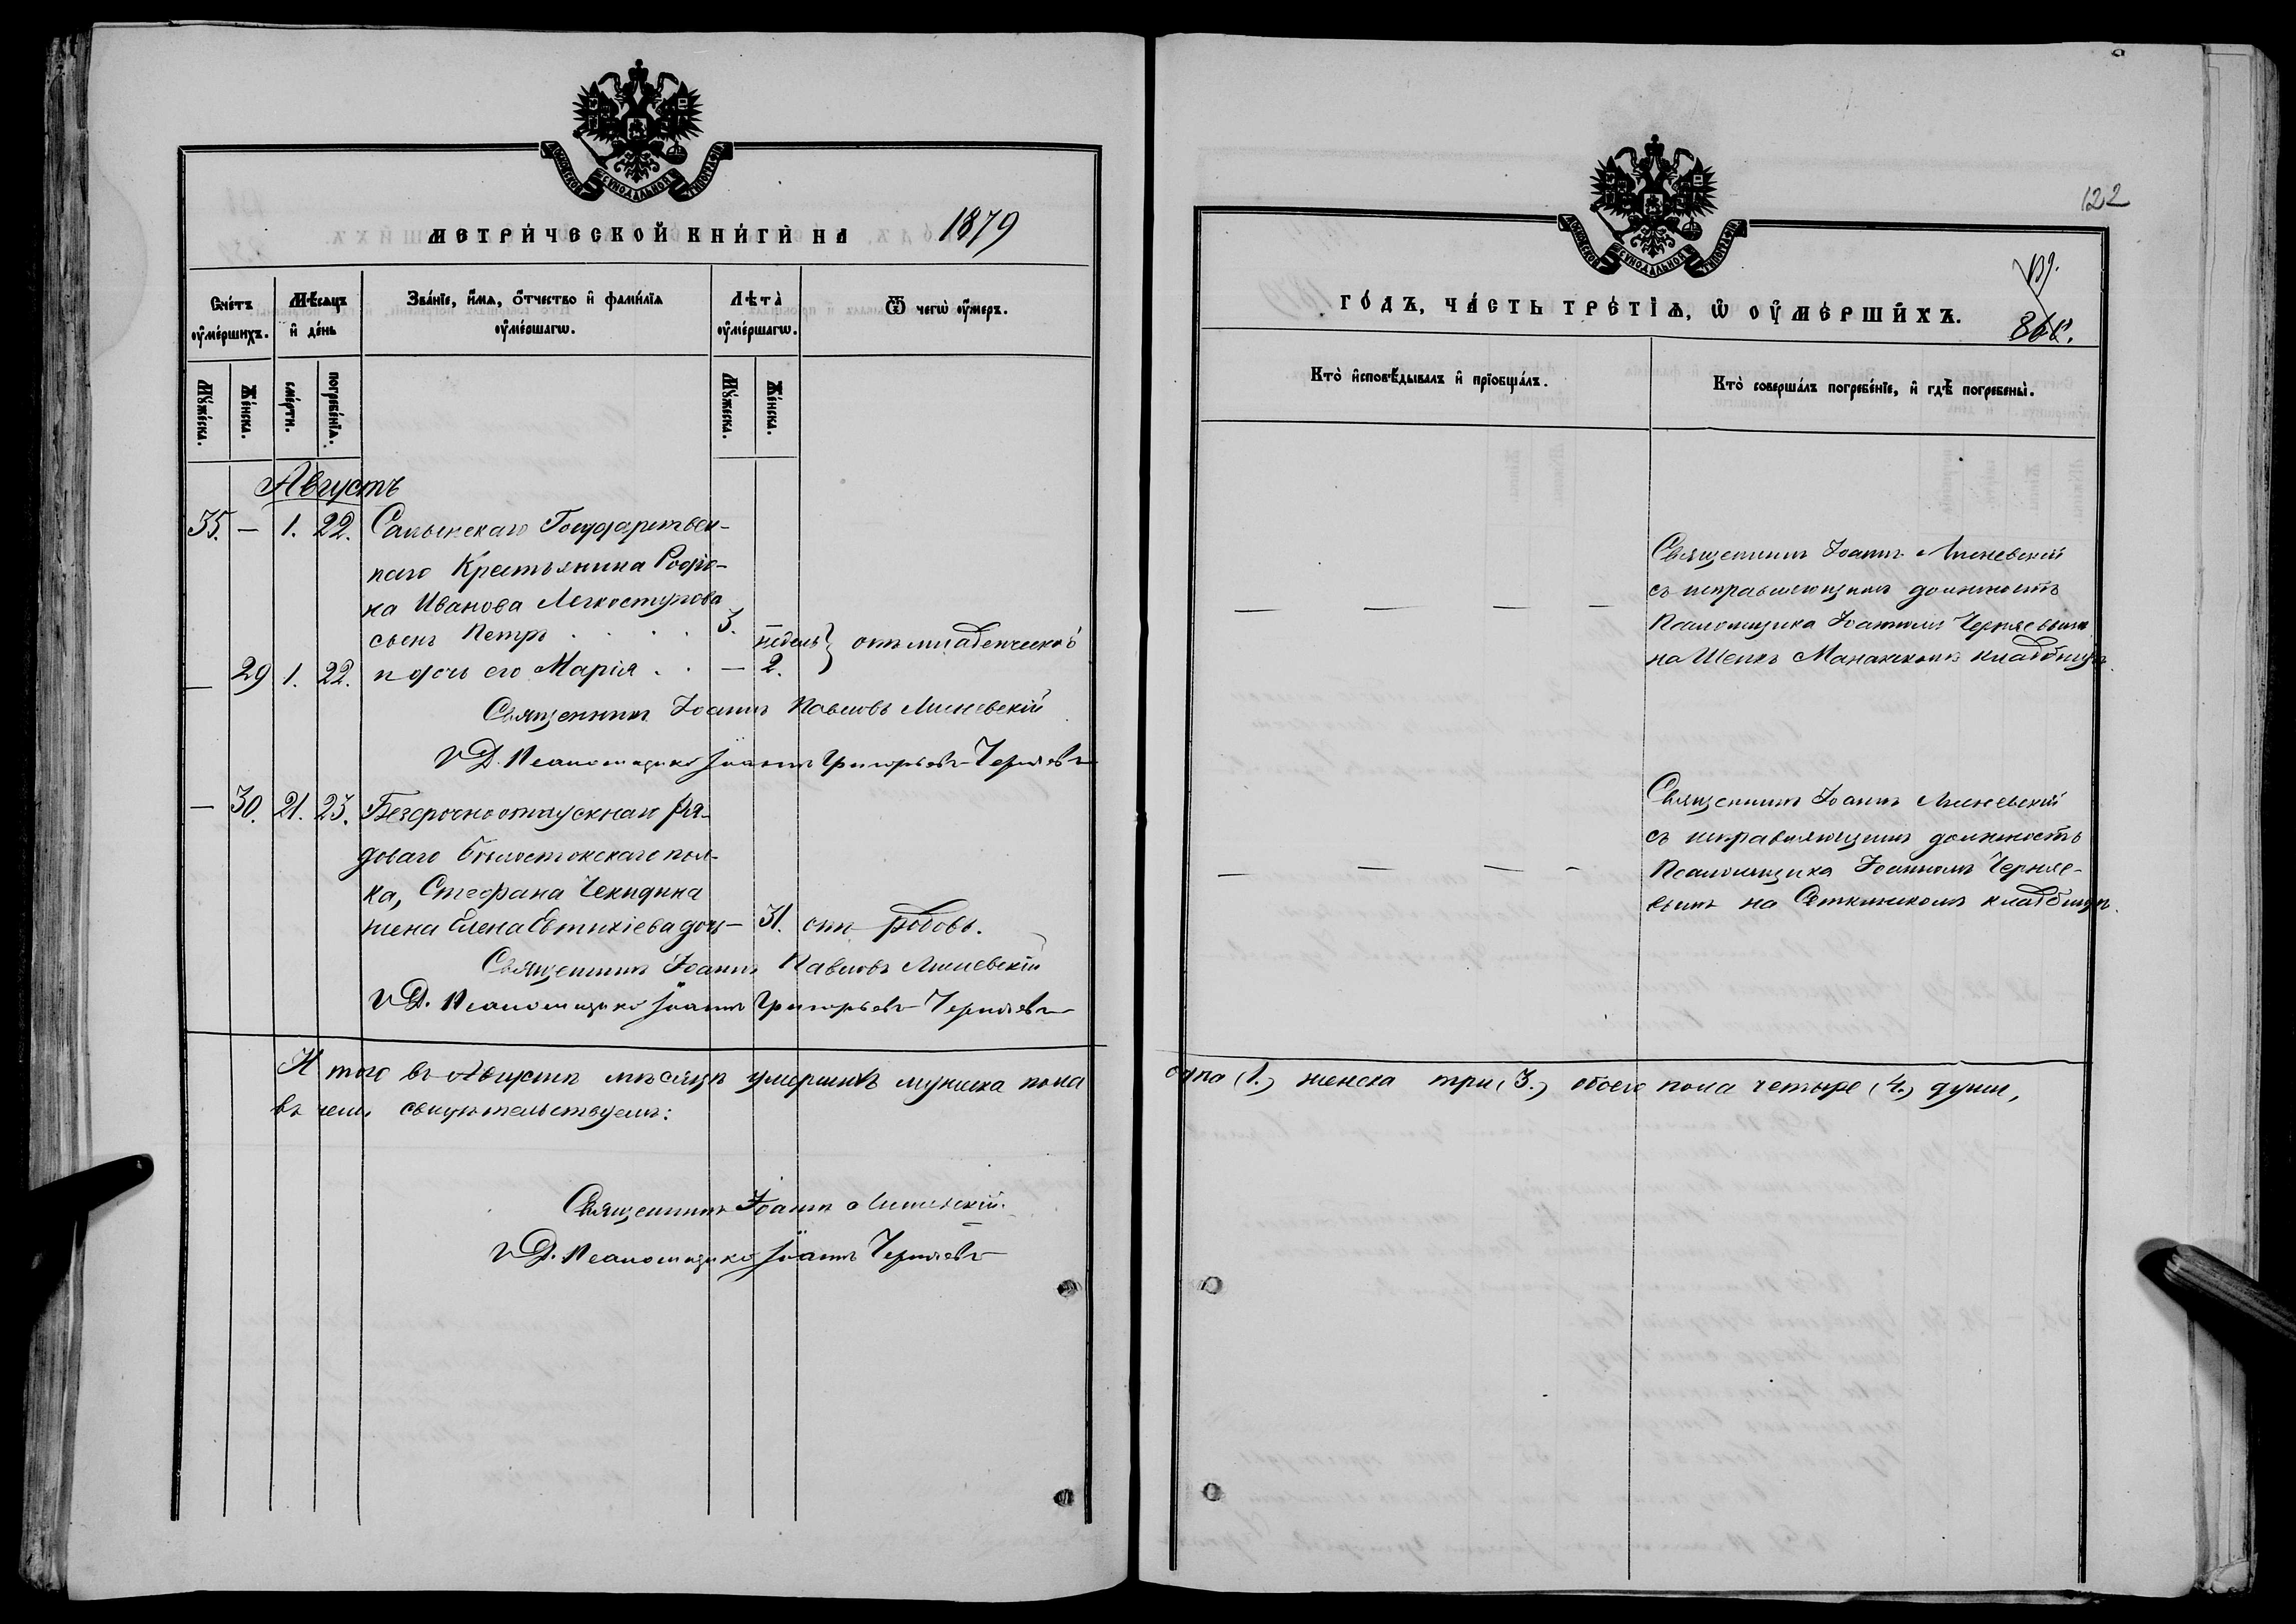 МОСКОВСКОЙ СѴНОДАЛЬНОЙ ТИПОГРАФІИ
МЕТРИ́ЧЕСКОЙ КНИ́ГИ НА 1879
Сче́тъ оу҆ме́ршихъ.
Мѣ́сяцъ и҆ де́нь
Зва́нїе, и҆́мѧ, ѻ҆́тчество и҆ фами́лїѧ оу҆ме́ршагѡ.
Лѣта̀ оу҆ме́ршагѡ.
Ѿ чегѡ̀ оу҆́меръ.
Мꙋ́жеска.
Же́нска.
сме́рти.
погребе́нїѧ.
Мꙋ́жеска.
Же́нска.
Августъ
35. — 1. 22. Салынскаго Государствен-
наго Крестьянина Родіо-
на Иванова Легкоступова
сынъ Петръ . . . . 3. недель } отъ младенческой
— 29 1. 22. и дочь его Марія . . — 2.
Священникъ Іоаннъ Павловъ Линевскій
И Д. Псаломщика Іоаннъ Григорьевъ Черняевъ
— 30. 21. 23. Безсрочноотпускнаго Ря-
доваго Бѣлостокскаго пол-
ка, Стефана Чекидина
жена Елена Евтихіева дочь — 31. отъ родовъ.
Священникъ Іоаннъ Павловъ Линевскій
И Д. Псаломщика Іоаннъ Григорьевъ Черняевъ
И того въ Августѣ мѣсяцѣ умершихъ мужеска пола
въ чемъ свидѣтельствуемъ:
Священникъ Іоаннъ Линевскій.
И Д. Псаломщика Іоаннъ Черняевъ
122
МОСКОВСКОЙ СѴНОДАЛЬНОЙ ТИПОГРАФІИ
ГО́ДЪ, ЧА́СТЬ ТРЕ́ТЇѦ, Ѡ҆ ОУ҆МЕ́РШИХЪ.
Кто̀ и҆сповѣ́дывалъ и҆ прїобща́лъ.
Кто̀ соверша́лъ погребе́нїе, и҆ гдѣ̀ погребены̀.
Священникъ Іоаннъ Линевскій
съ исправляющимъ должность
Псаломщика Іоанномъ Черняевымъ
на кладбищѣ.
Священникъ Іоаннъ Линевскій
съ исправляющимъ должность
Псаломщика Іоанномъ Черняе-
вымъ на кладбищѣ.
одна (1.) женска три (3.) обоего пола четыре (4.) души,